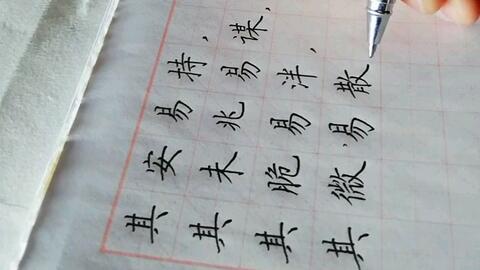 其安易持，
其未兆易谋，
其脆易洋，
其微易散